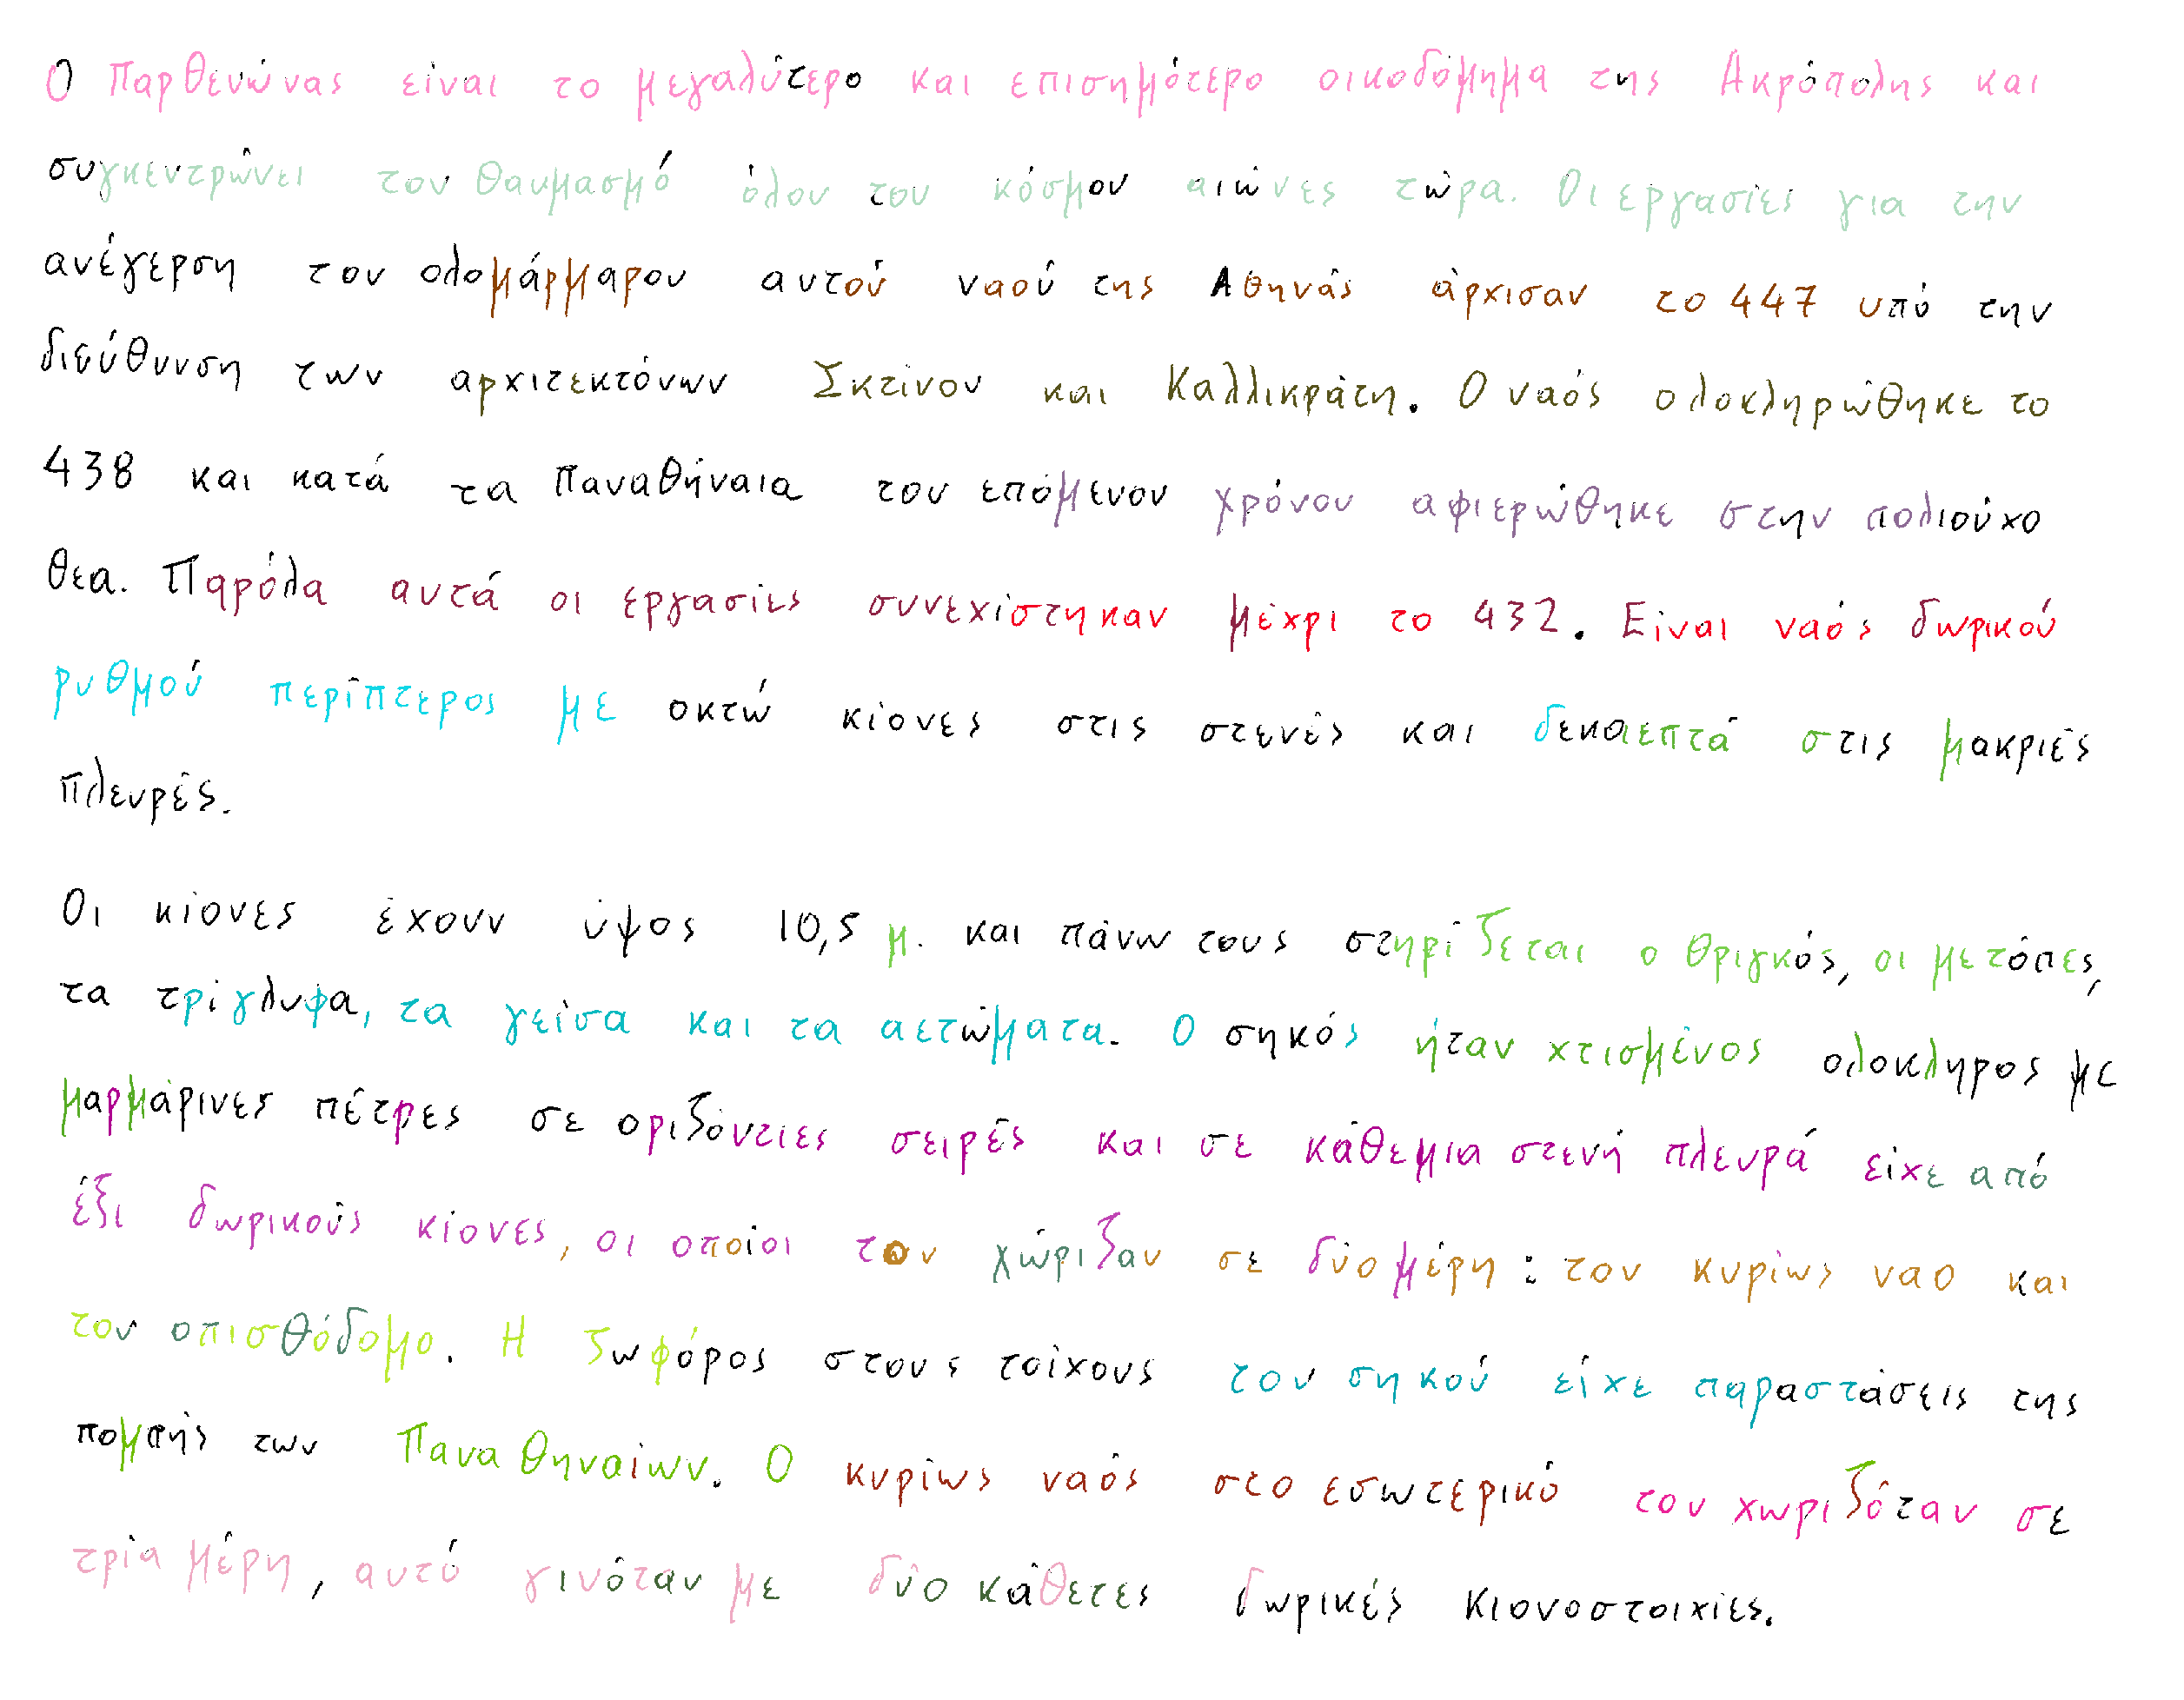 Ο Παρθενώνας είναι το μεγαλύτερο και επισημότερο οικοδόμημα της Ακρόπολης και
συγκεντρώνει τον θαυμασμό όλου του κόσμου αιώνες τώρα. Οι εργασίες για την
ανέγερση του ολομάρμαρου αυτού ναού της Αθηνάς άρχισαν το 447 υπό την
διεύθυνση των αρχιτεκτόνων Σκτίνου και Καλλικράτη. Ο ναός ολοκληρώθηκε το
438 και κατά τα Παναθήναια του επόμενου χρόνου αφιερώθηκε στην πολιούχο
θεα. Παρόλα αυτά οι εργασίες συνεχίστηκαν μέχρι το 432. Είναι ναός δωρικού
ρυθμού περίπτερος με οκτώ κίονες στις στενές και δεκαεπτά στις μακριές
πλευρές.
Οι κίονες έχουν ύψος 10,5 μ. και πάνω τους στηρίζεται ο θριγκός, οι μετόπες,
τα τρίγλυφα, τα γείσα και τα αετώματα. Ο σηκός ήταν χτισμένος ολοκληρος με
μαρμάρινες πέτρες σε οριζόντιες σειρές και σε κάθεμια στενή πλευρά είχε από
έξι δωρικούς κίονες, οι οποίοι τον χώριζαν σε δύο μέρη: τον κυρίως ναο και
τον οπισθόδομο. Η ζωφόρος στους τοίχους του σηκού είχε παραστάσεις της
πομπής των Παναθηναίων. Ο κυρίως ναός στο εσωτερικό του χωριζόταν σε
τρία μέρη, αυτό γινόταν με δύο κάθετες δωρικές κιονοστοιχίες.